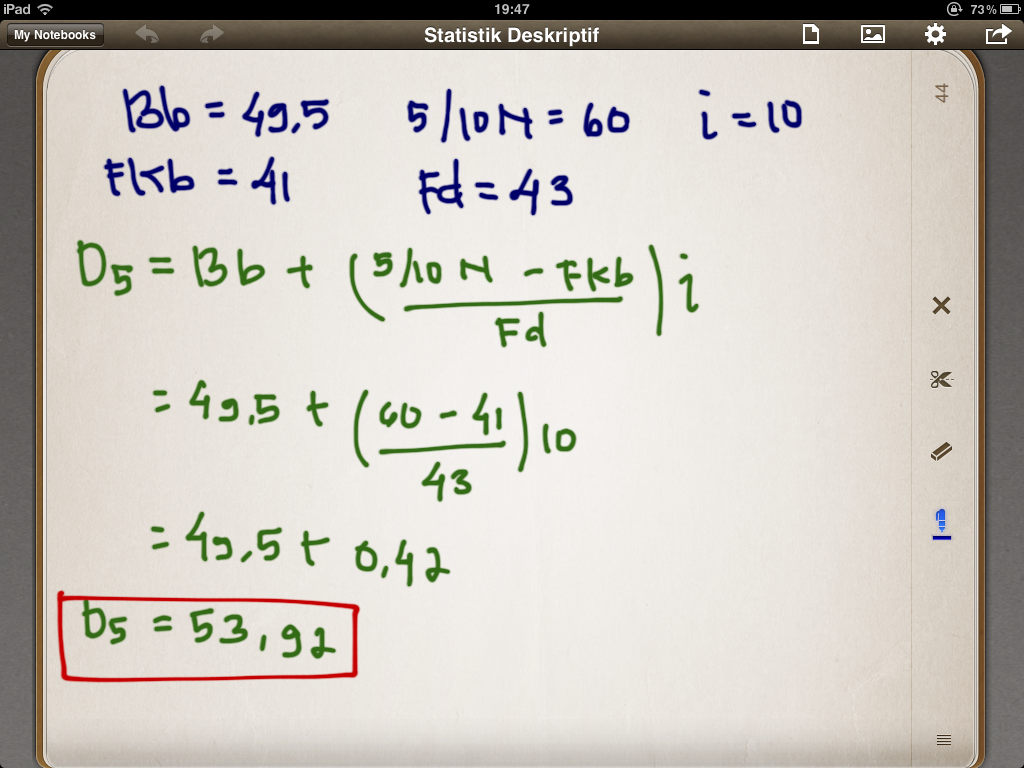 iPad 19:47 73%
My Notebooks Statistik Deskriptif
44
Bb = 49,5 5/10 N = 60 i = 10
Fkb = 41 Fd = 43
D5 = Bb + (5/10 N - Fkb) i
Fd
= 49,5 + (60 - 41) 10
43
= 49,5 + 0,42
D5 = 53,92